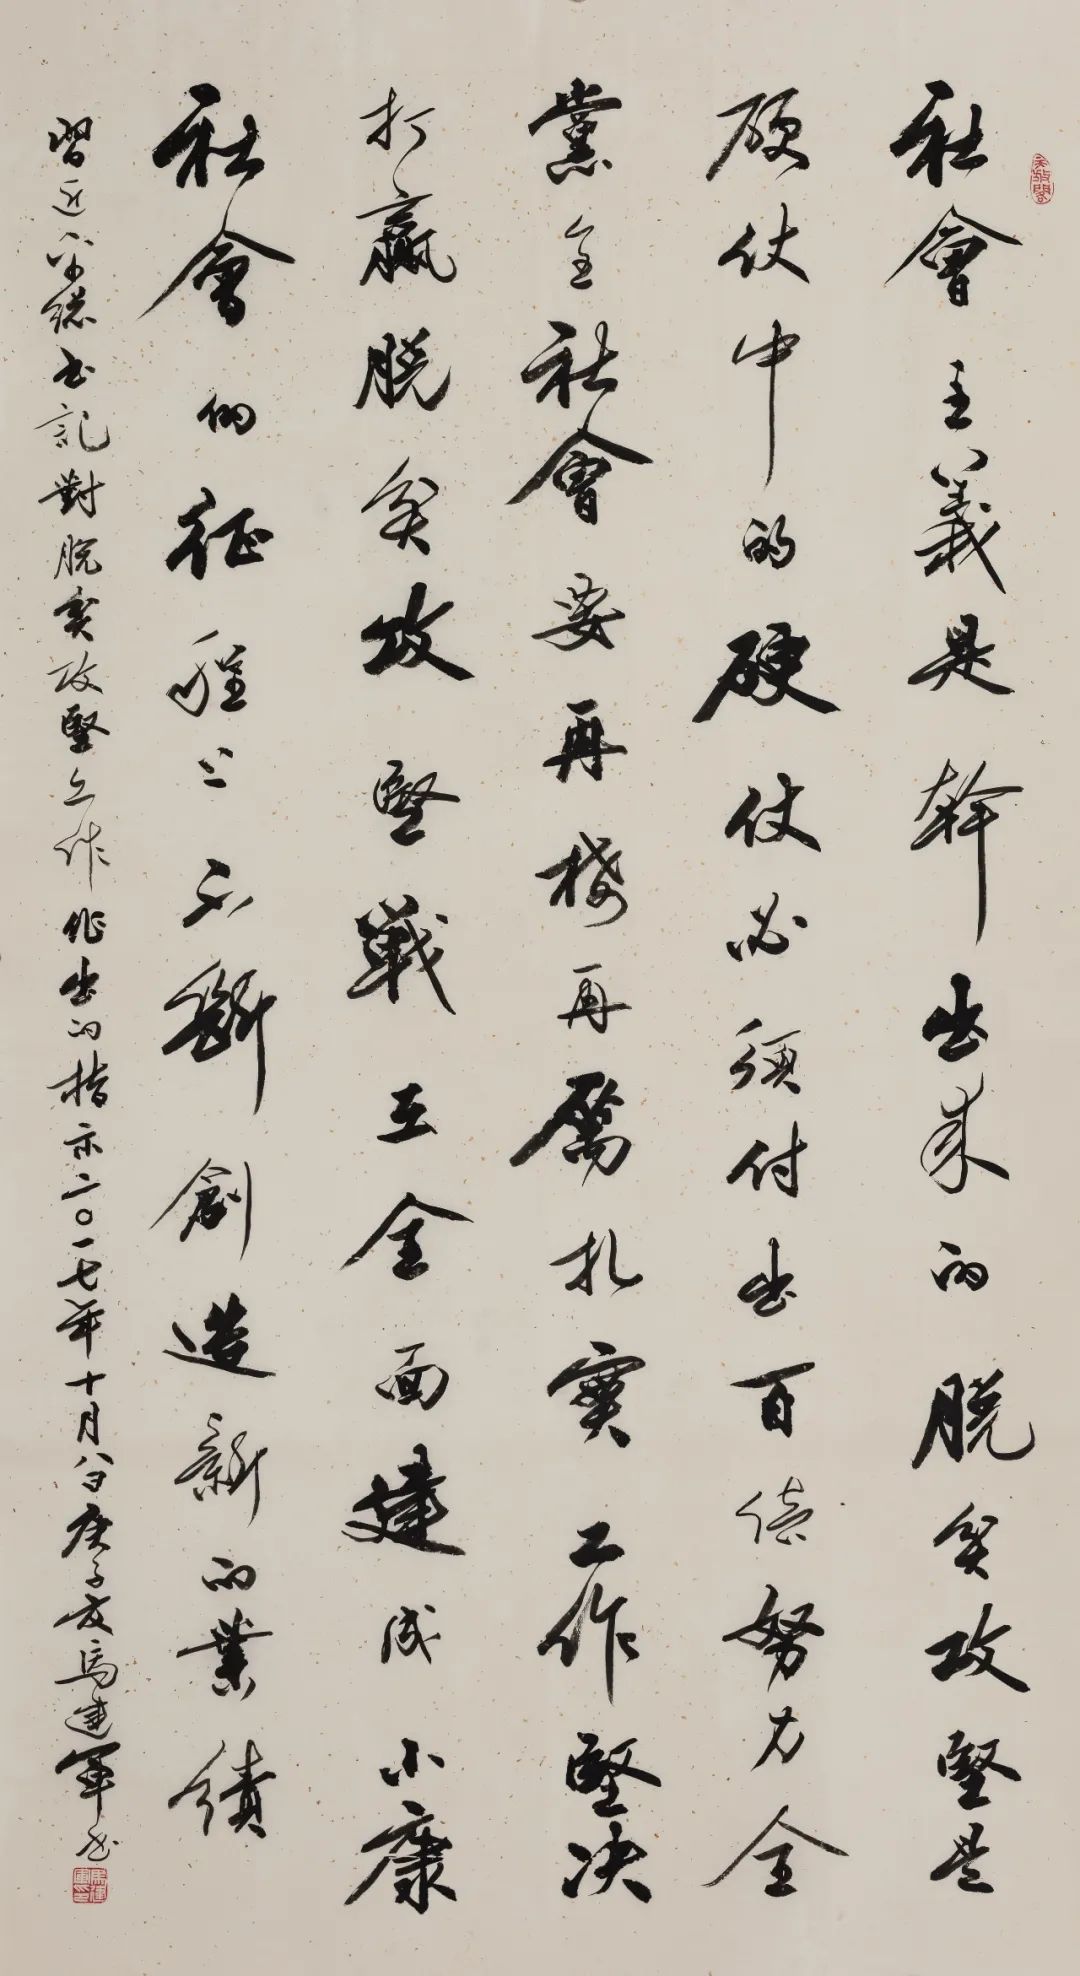 社會主義是幹出來的脱貧攻堅是
硬仗中的硬仗必須付出百倍努力全
黨全社會要再接再厲扎實工作堅决
打赢脱貧攻堅戰在全面建成小康
社會的征程上不斷創造新的業績
習近平總書記對脱貧攻堅工作作出的指示二〇一七年十月八日庚子夏馬建軍書